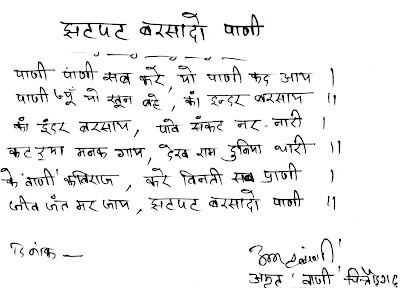 झटपट बरसादो पाणी
पाणी पाणी सब करे, यो पाणी कद आय ।
पाणी ज्यूँ यो खून बहे, कां इन्दर बरसाय ॥
कां इंदर बरसाय, पावे संकट नर-नारी ।
कट रया मनक गाय, देख राम दुनिया थारी ॥
के 'वाणी' कविराज, करे विनती सब प्राणी ।
जीव जंत मर जाय, झटपट बरसादो पाणी ॥
दिनांक —
अमृत 'वाणी' चित्तौड़गढ़